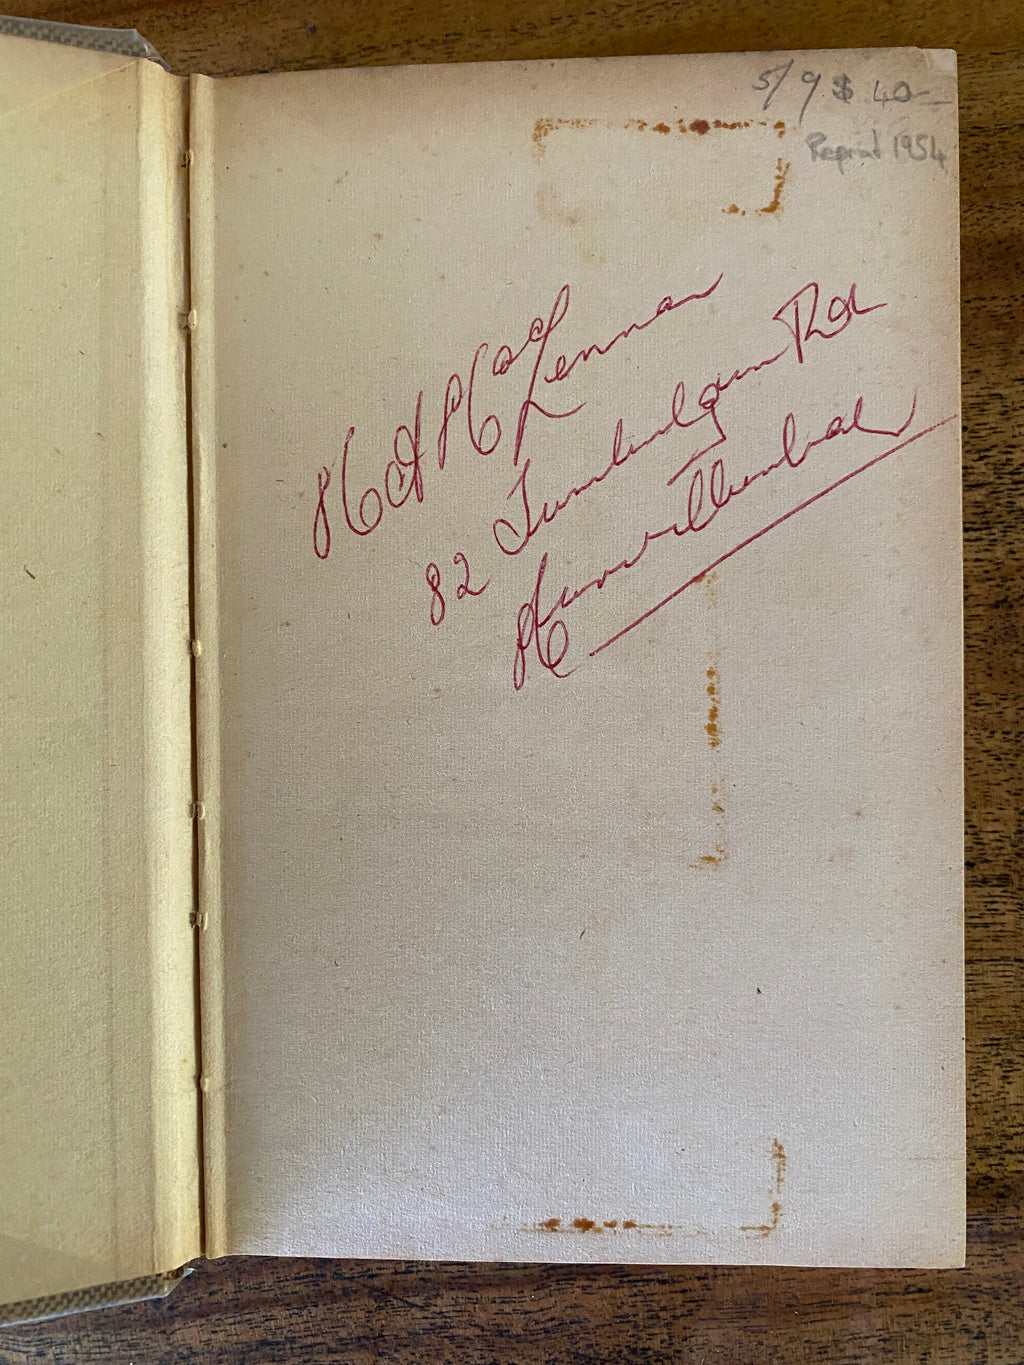 5/9 $ 40-
Reprint 1954
M A MacLennan
82 Tumbulgum Rd
Murwillumbah